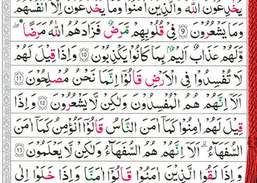 يُخٰدِعُونَ اللّٰهَ وَالَّذِينَ اٰمَنُوا وَمَا يَخْدَعُونَ اِلَّا اَنْفُسَهُمْ
وَمَا يَشْعُرُونَ ﴿٩﴾ فِى قُلُوبِهِمْ مَرَضٌ فَزَادَهُمُ اللّٰهُ مَرَضًا
وَلَهُمْ عَذَابٌ اَلِيمٌ بِمَا كَانُوا يَكْذِبُونَ ﴿١٠﴾ وَاِذَا قِيلَ لَهُمْ
لَا تُفْسِدُوا فِى الْاَرْضِ قَالُوا اِنَّمَا نَحْنُ مُصْلِحُونَ ﴿١١﴾
اَلَا اِنَّهُمْ هُمُ الْمُفْسِدُونَ وَلٰكِنْ لَا يَشْعُرُونَ ﴿١٢﴾ وَاِذَا
قِيلَ لَهُمْ اٰمِنُوا كَمَا اٰمَنَ النَّاسُ قَالُوا اَنُؤْمِنُ كَمَا اٰمَنَ
السُّفَهَاءُ اَلَا اِنَّهُمْ هُمُ السُّفَهَاءُ وَلٰكِنْ لَا يَعْلَمُونَ ﴿١٣﴾
وَاِذَا لَقُوا الَّذِينَ اٰمَنُوا قَالُوا اٰمَنَّا وَاِذَا خَلَوْا اِلٰى